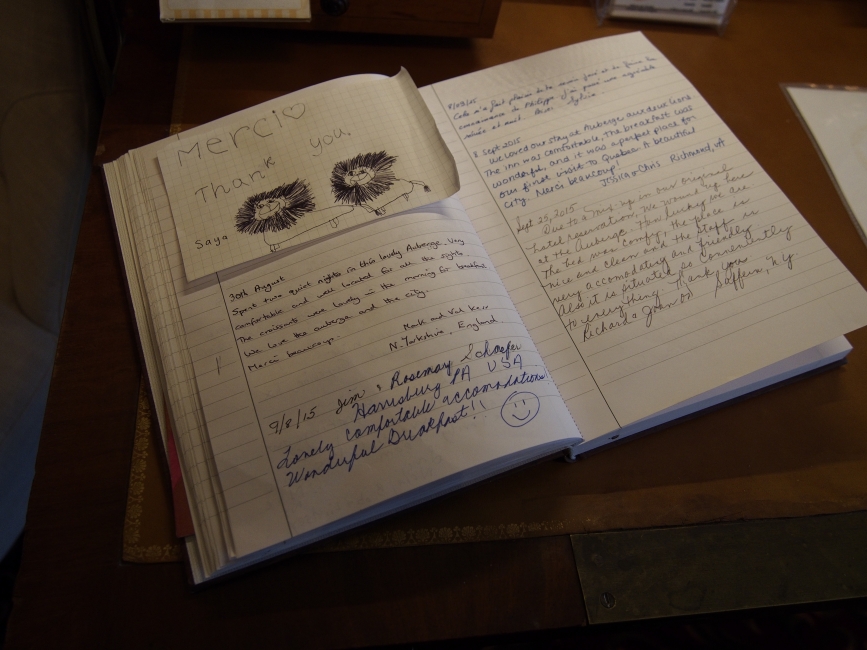 Merci♡
Thank you,
Saya
30th August
Spent two quiet nights in this lovely Auberge. Very
comfortable and well located for all the sights.
The croissants were lovely in the morning for breakfast
We love the auberge and the city.
Merci beaucoup.
Mark and Val Kerr
N. Yorkshire, England
9/8/15 Jim & Rosemary Schaefer
Harrisburg PA USA
Lovely comfortable accomodations
Wonderful Breakfast!!
Cela m'a fait plaisir de
connaissance de Philippe. J'ai passé une agréable
Sylvie
8 Sept 2015
We loved our stay at Auberge aux deux lions
The inn was comfortable, the breakfast was
wonderful, and it was a perfect place for
our first visit to Quebec. A beautiful
city. Merci beaucoup!
Jessica + Chris Richmond, VA
Sept 25, 2015
Due to a mix-up in our original
hotel reservation, we wound up here
at the Auberge. How lucky we are.
The bed was comfy, the place is
nice and clean and the staff is
very accomodating and friendly
Also it is situated so conveniently
to everything. Thank you
Richard & Joan Suffern, NY